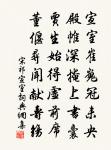 宣室崔嵬冠未央
殿帷深上書囊
賈生始得虛前席
董偃尋聞獻壽觴
宋祁宣室詞典網集